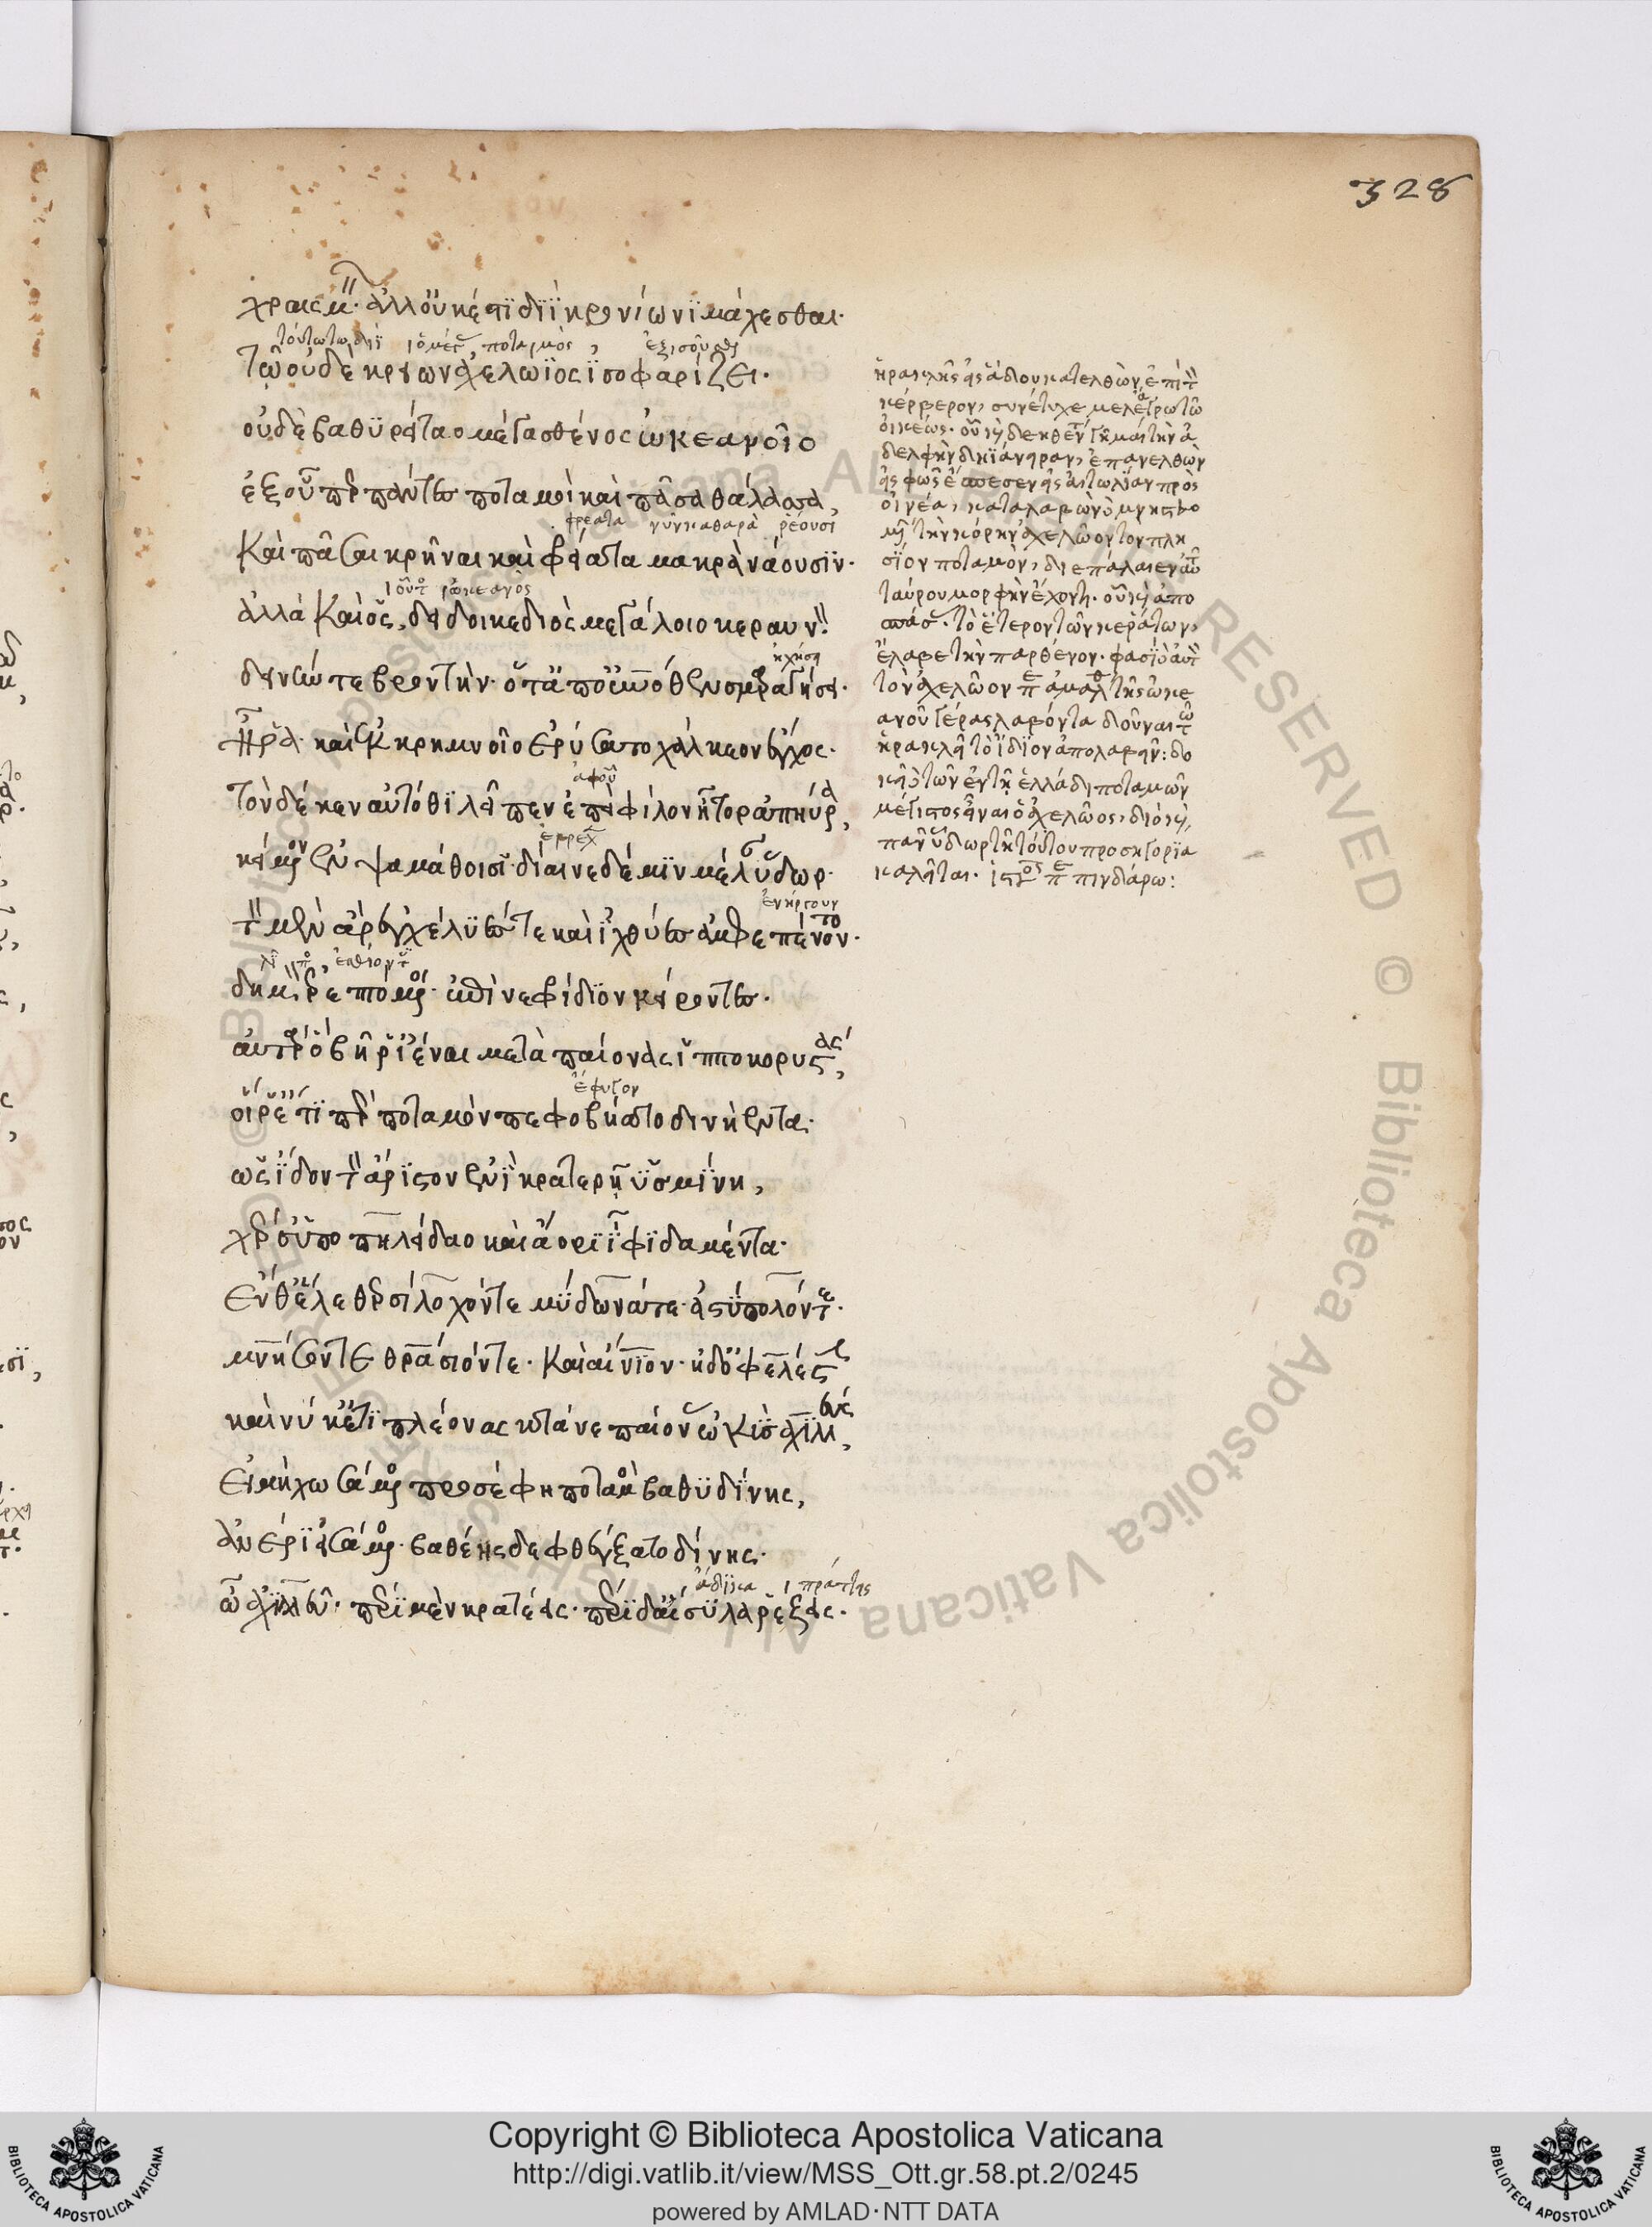 χραισμεῖν· ἀλλ' οὐκ ἔστϊ διῒ κρονίωνϊ μάχεσθαι·
τούτω τῶ διῒ ὁ μέγας ποταμὸς, ἐξισοῦται
τῶ οὐδὲ κρείων ἀχελώϊος ἰσοφαρίζει·
οὐδὲ βαθϋρείταο μέγα σθένος ὠκεανοῖο
ἐξ οὗ περ πάντες ποταμοὶ καὶ πᾶσα θάλασσα,
φρέατα νῦν καθαρὰ ῥέουσι
Καὶ πᾶσαι κρῆναι καὶ φρείατα μακρὰ νάουσϊν·
οὗτος ὁ ὠκεανὸς
ἀλλὰ Καὶ ὃς, δείδοικε διὸς μεγάλοιο κεραυνόν
ἠχήση
δεινήν τε βροντὴν· ὅτ' ἀπ' οὐρανόθεν σμαραγήση·
Ἦ ῥα· καὶ ἐκ κρημνοῖο ἐρύσατο χάλκεον ἔγχος·
ἀφοῦ
τὸν δέ κεν αὐτόθϊ λεῖπεν ἐπεὶ φίλον ἦτορ ἀπηύρα,
κείμενον ἐν ψαμάθοισϊ· δίαινε δέ μϊν μέλαν ὕδωρ·
ἐνήργουν
τὸν μὲν ἄρ' ἐγχέλϋές τε καὶ ἰχθύες ἀμφεπένοντο·
δημὸν ἐρεπτόμενοι· ἐπὶ νεφρίδϊον κείροντες·
αὐτὰρ ὁ βῆ ῥ' ἰέναι μετὰ παίονας ἱπποκορυστάς,
ἔφυγον
οἵ ῥ' ἔτϊ παρ ποταμὸν πεφοβήατο δινήεντα·
ὡς ἴδον τὸν ἄρϊστον ἐνῒ κρατερῆ ὑσμίνη,
χέρσ' ὕπο πηλείδαο καὶ ἄορϊ ἶφϊ δαμέντα·
Ἔνθ' ἕλε θερσίλοχόν τε μύδωνά τε· ἀστύπολόν τε·
μνῆσόν τε θρασίόν τε· Καὶ αἴνϊον· ἠδ' ὀφελέστην
καὶ νύ κ' ἔτϊ πλέονας κτάνε παίονας ὠκῢς ἀχϊλλεύς,
Εἰ μὴ χωσάμενος προσέφη ποταμὸς βαθϋδίνης,
ἀνέρϊ εἰσάμενος· βαθέης δ' ἐφθέγξατο δίνης·
ἄδϊκα πράττεις
ὦ ἀχϊλεῦ· πέρϊ μὲν κρατέεις· πέρϊ δ' αἴσϋλα ῥέξεις·
ἡρακλῆς εἰς ἅδου κατελθὼν, ἐπὶ τὸν
κέρβερον, συνέτυχε μελεάγρω τῶ
οἰνέως· οὗ καὶ δεηθέντος γῆμαι τὴν ἀ
δελφὴν δηϊάνηραν, ἐπανελθὼν
εἰς φῶς ἔσπεσεν εἰς αἰτωλΐαν πρὸς
οἰνέα, καταλαβὼν δὲ μνηστευό
μενον τὴν κόρην ἀχελῶον τὸν πλη
σΐον ποταμὸν, διεπάλαισεν αὐτῶ
ταύρου μορφὴν ἔχοντι· οὗ καὶ ἀπο
σπάσας τὸ ἕτερον τῶν κεράτων,
ἔλαβε τὴν παρθένον· φασῒ δὲ αὐτὸν
τὸν ἀχελῶον παρὰ ἀμαλθείας τῆς ὠκε
ανοῦ κέρας λαβόντα δοῦναι τῶ
ἡρακλεῖ τὸ ἴδϊον ἀπολαβεῖν: δο
κεῖ δὲ τῶν ἐν τῆ ἑλλάδι ποταμῶν
μέγιστος εἶναι ὁ ἀχελῶος, διὸ καὶ
πᾶν ὕδωρ τῆ τούτου προσηγορΐα
καλεῖται· ἱστορία παρὰ πινδάρω:
328
Copyright © Biblioteca Apostolica Vaticana
http://digi.vatlib.it/view/MSS_Ott.gr.58.pt.2/0245
powered by AMLAD·NTT DATA